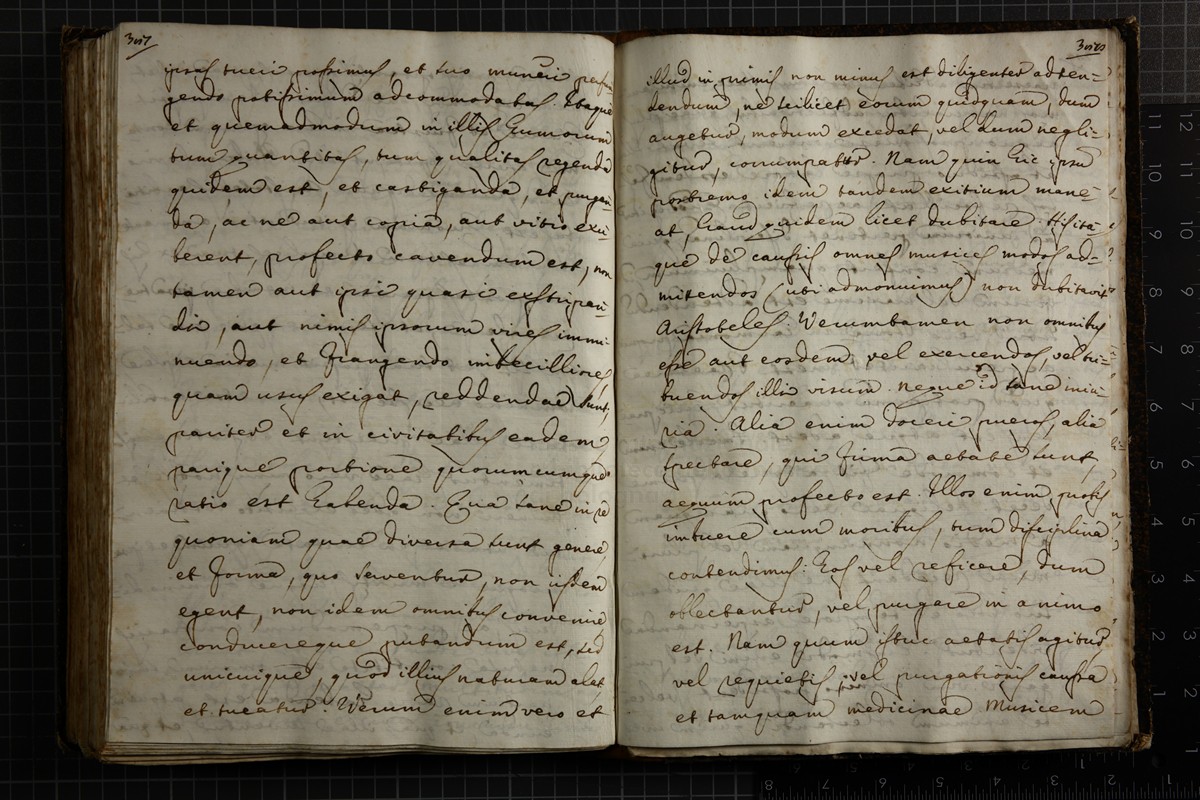 ipsas tueri possimus, et suo muneri pera-
gendo potissimum adcommodatas. Itaque
et quemadmodum in illis humorum
tum quantitas, tum qualitas regenda
quidem est, et castiganda, et purgan-
da, ac ne aut copia, aut vitio exu-
berent, profecto cavendum est, non
tamen aut ipsi quasi exstirpan-
di, aut nimis ipsorum vires immi-
nuendo, et frangendo imbecilliores
quam usus exigat, reddendae sunt,
pariter et in civitatibus eadem
parique portione quorumcumque
ratio est habenda. Qua sane in re
quoniam quae diversa sunt genere,
et forma, quo serventur, non iisdem
egent, non idem omnibus convenire
conducereque putandum est, sed
unicuique, quod illius naturam alat
et tueatur. Verum enim vero et
illud in primis non minus est diligenter adten-
dendum, ne scilicet eorum quidquam, dum
augetur, modum excedat, vel dum negli-
gitur, corrumpatur. Nam quin hic ipsu
postremo idem tandem exitium mane-
at, haud quidem licet dubitare. His ita-
que de caussis omnes musices modos ad-
mittendos (ubi admonuimus) non dubitavit
Aristoteles. Verumtamen non omnibus
esse aut eosdem, vel exercendos, vel tri-
buendos illi visum. Neque id sane iniu-
ria. Alia enim docere pueros, alia
spectare, qui firma aetate sunt,
aequum profecto est. Illos enim probis
imbuere cum moribus, tum disciplina
contendimus: Eos vel reficere, dum
oblectantur, vel purgare in animo
est. Nam quum istuc aetatis agitur
vel requietis, vel purgationis caussa
et tamquam medicinae Musicem